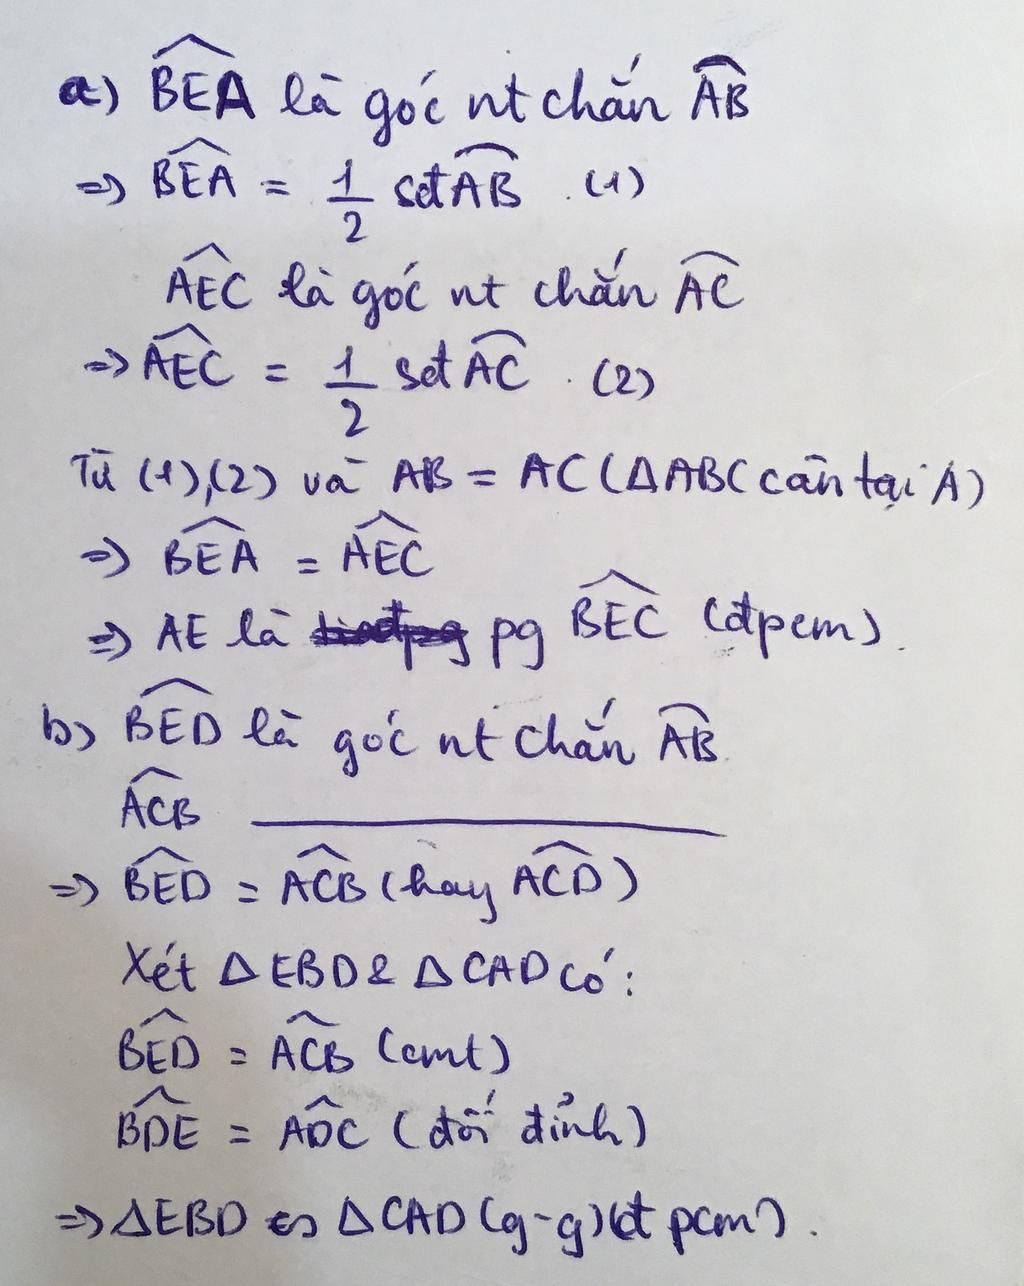 a) BEA là góc nt chắn AB
=> BEA = 1/2 sđ AB. (1)
AEC là góc nt chắn AC
=> AEC = 1/2 sđ AC. (2)
Từ (1),(2) và AB = AC (ΔABC cân tại A)
=> BEA = AEC
=> AE là pg BEC (đpcm).
b) BED là góc nt chắn AB.
ACB
=> BED = ACB (hay ACD)
Xét Δ EBD & Δ CAD có:
BED = ACB (cmt)
BDE = ADC (đối đỉnh)
=> ΔEBD ∽ ΔCAD (g-g) (đpcm).